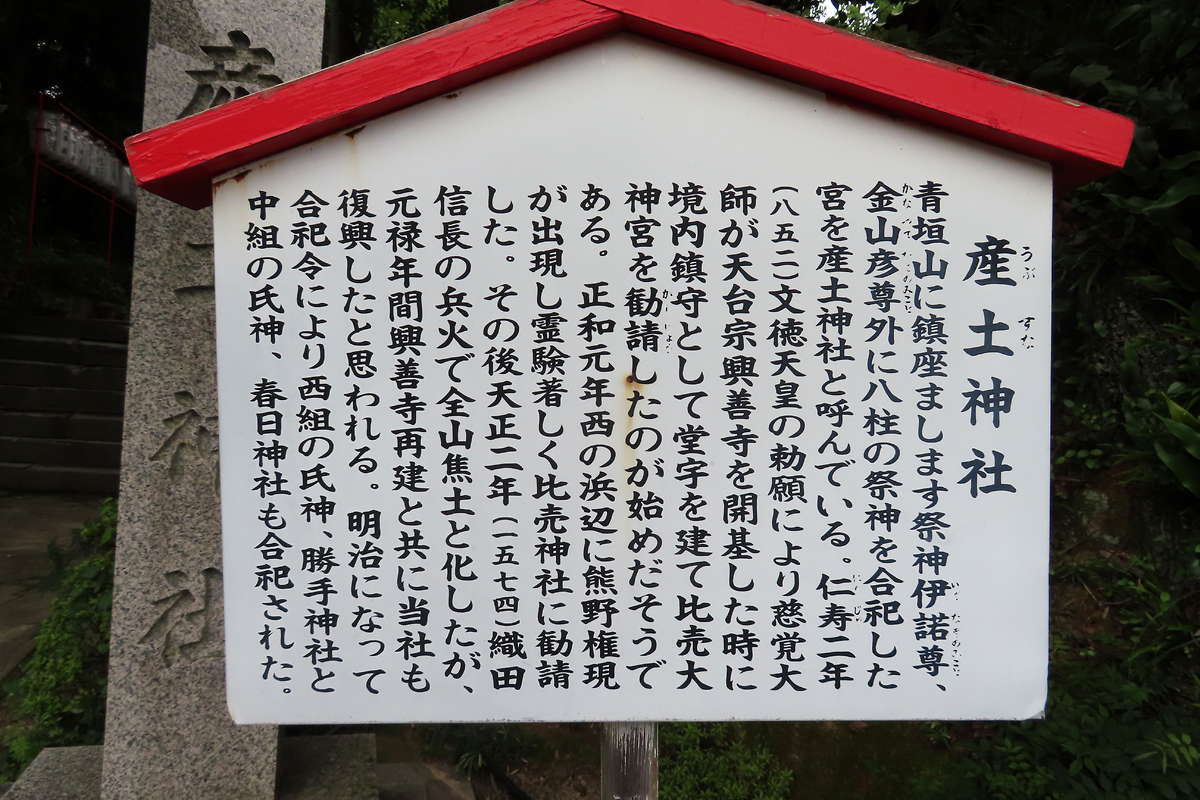 産土神社
うぶ すな
青垣山に鎮座まします祭神伊諾尊、
金山彦尊外に八柱の祭神を合祀した
宮を産土神社と呼んでいる。仁寿二年
(八五二)文徳天皇の勅願により慈覚大
師が天台宗興善寺を開基した時に
境内鎮守として堂宇を建て比売大
神宮を勧請したのが始めだそうで
ある。正和元年西の浜辺に熊野権現
が出現し霊験著しく比売神社に勧請
した。その後天正二年(一五七四)織田
信長の兵火で全山焦土と化したが、
元禄年間興善寺再建と共に当社も
復興したと思われる。明治になって
合祀令により西組の氏神、勝手神社と
中組の氏神、春日神社も合祀された。
産土神社